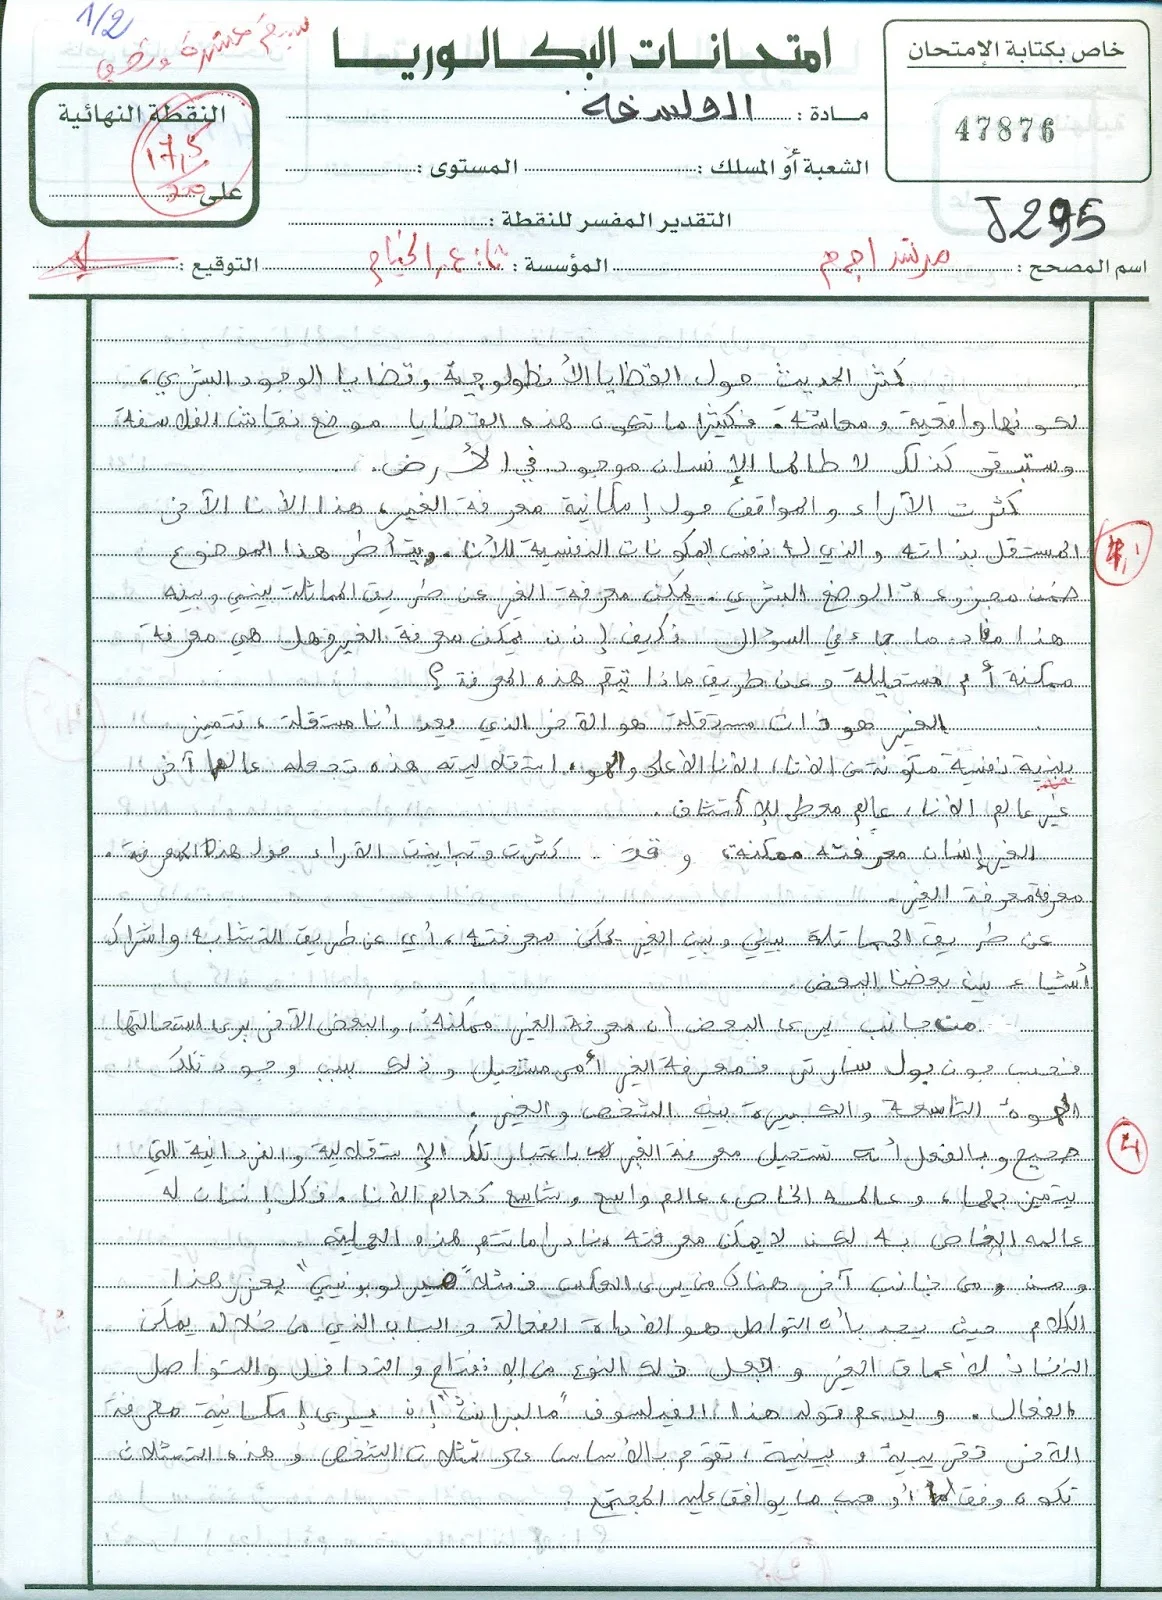 1/2
سبع عشرة ونصف
امتحانات البكالوريا
خاص بكتابة الإمتحان
47876
J295
النقطة النهائية
17,5
على 20
مادة : الفلسفة
الشعبة أو المسلك : المستوى :
التقدير المفسر للنقطة :
اسم المصحح : المؤسسة : التوقيع :
كثر الحديث حول القضايا الأنطولوجية وقضايا الوجود البشري،
لكونها واقعية ومعاشة. فكثيرا ما تكون هذه القضايا موضع نقاش الفلاسفة
وستبقى كذلك لا طالما الإنسان موجود في الأرض.
كثرت الآراء والمواقف حول إمكانية معرفة الغير، هذا الأنا الآخر
المستقل بذاته والذي له نفس المكونات النفسية للأنا. ويتأطر هذا الموضوع
ضمن مجزوءة الوضع البشري. يمكن معرفة الغير عن طريق المماثلة بيني وبينه
هذا مفاد ما جاء في السؤال فكيف إذن يمكن معرفة الغير فهل هي معرفة
ممكنة أم مستحيلة وعن طريق ماذا تتم هذه المعرفة ؟
الغير هو ذات مستقلة هو الآخر الذي يعد أنا مستقلة، تتميز
ببنية نفسية متكونة من الأنا، الأنا الأعلى والهو. استقلاليته هذه تجعله عالما آخر
غير عالم الأنا، عالم معطى للإكتشاف.
الغير إنسان معرفته ممكنة، وقد كثرت وتباينت الآراء حول هذه المعرفة.
معرفة معرفة الغير.
عن طريق المماثلة بيني وبين الغير يمكن معرفته، أي عن طريق التشابه واشتراك
أشياء بين بعضنا البعض.
من جانب يرى البعض أن معرفة الغير ممكنة، والبعض الآخر يرى استحالتها
فحسب جون بول سارتر فمعرفة الغير أمر مستحيل وذلك بسبب وجود تلك
الهوة الشاسعة والكبيرة بين الشخص والغير.
صحيح وبالفعل أنه تستحيل معرفة الغير باعتبار تلك الإستقلالية والفردانية التي
يتميز بهما، وعالمه الخاص، عالم واسع وشاسع كعالم الأنا. فكل إنسان له
عالمه الخاص به لكن لا يمكن معرفته نادرا ما تتم هذه العملية
ومن جانب آخر هناك من يرى العكس فمثلا "ميرلوبونتي" يعزز هذا
الكلام حيث يعد بأن التواصل هو القناة الفعالة والباب الذي من خلاله يمكن
النفاذ لأعماق الغير وجعل ذلك النوع من الإنفتاح والتداخل والتواصل
الفعال. ويدعم قوله هذا الفيلسوف "مالبرانش" إذ يرى إمكانية معرفة
الآخر تقريبية و بينية، تقوم بالأساس على تمثلات الشخص وهذه التمثلات
تكون وفقا أو حسب ما يوافق عليه المجتمع.
4